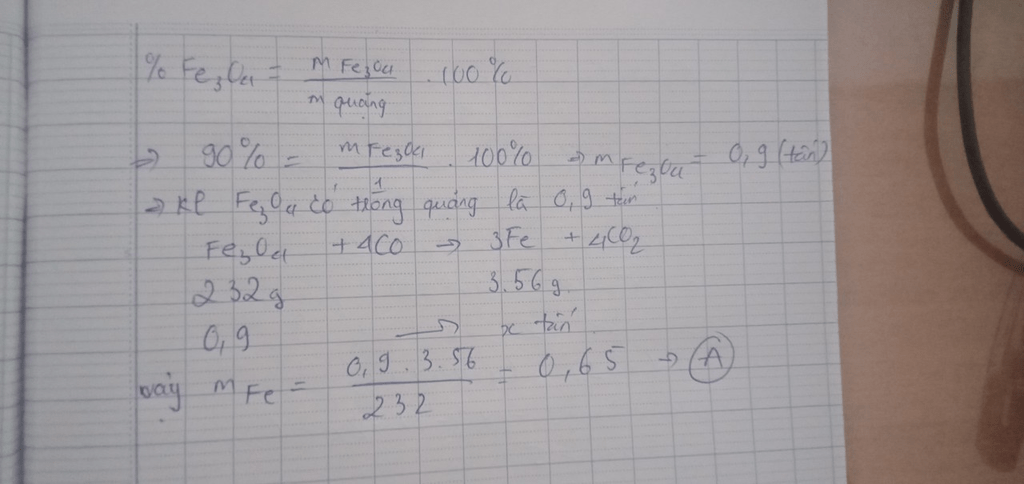 % Fe₃O₄ = m Fe₃O₄ / m quặng . 100%
=> 90% = m Fe₃O₄ / 1 . 100% => m Fe₃O₄ = 0,9 (tấn)
=> Kl Fe₃O₄ có trong quặng là 0,9 tấn
Fe₃O₄ + 4CO -> 3Fe + 4CO₂
232g 3.56g
0,9 -> x tấn
vậy m Fe = 0,9 . 3.56 / 232 = 0,65 -> A